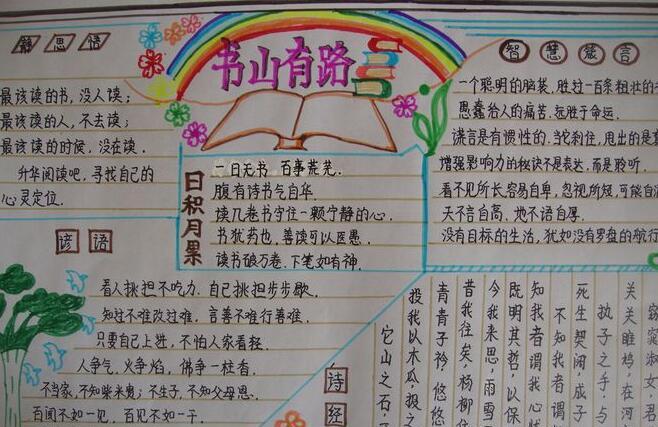 静思语
最该读的书，没人读；
最该读的人，不去读；
最该读的时候，没在读．
升华阅读吧，寻找自己的
心灵定位．
书山有路
智慧箴言
一个聪明的脑袋，胜过一百条粗壮的
愚蠢给人的痛苦，远胜于命运．
谎言是有惯性的．当刹住，甩出的是
增强影响力的秘诀不是表达，而是聆听．
看不见所长，容易自卑，忽视所短，可能自
天不言自高．地不语自厚．
没有目标的生活，犹如没有罗盘的航行
日积月累
一日无书 百事荒芜．
腹有诗书气自华．
读几卷书，守住一颗宁静的心．
书犹药也，善读可以医愚．
读书破万卷．下笔如有神．
谚语
看人挑担不吃力．自己挑担步步歇．
知过不难改过难，言善不难行善难．
只要自己上进，不怕人家看轻．
人争气，火争焰，佛争一柱香．
不当家，不知柴米贵；不生子，不知父母恩．
百闻不如一见，百见不如一干．
诗经
窈窕淑女，君
关关雎鸠，在河
执子之手，与
死生契阔，成子
不知我者谓
知我者谓我心
既明其哲，以保
今我来思，雨雪
昔我往矣，杨柳
青青子衿，悠悠
投我以木瓜，报之
它山之石，